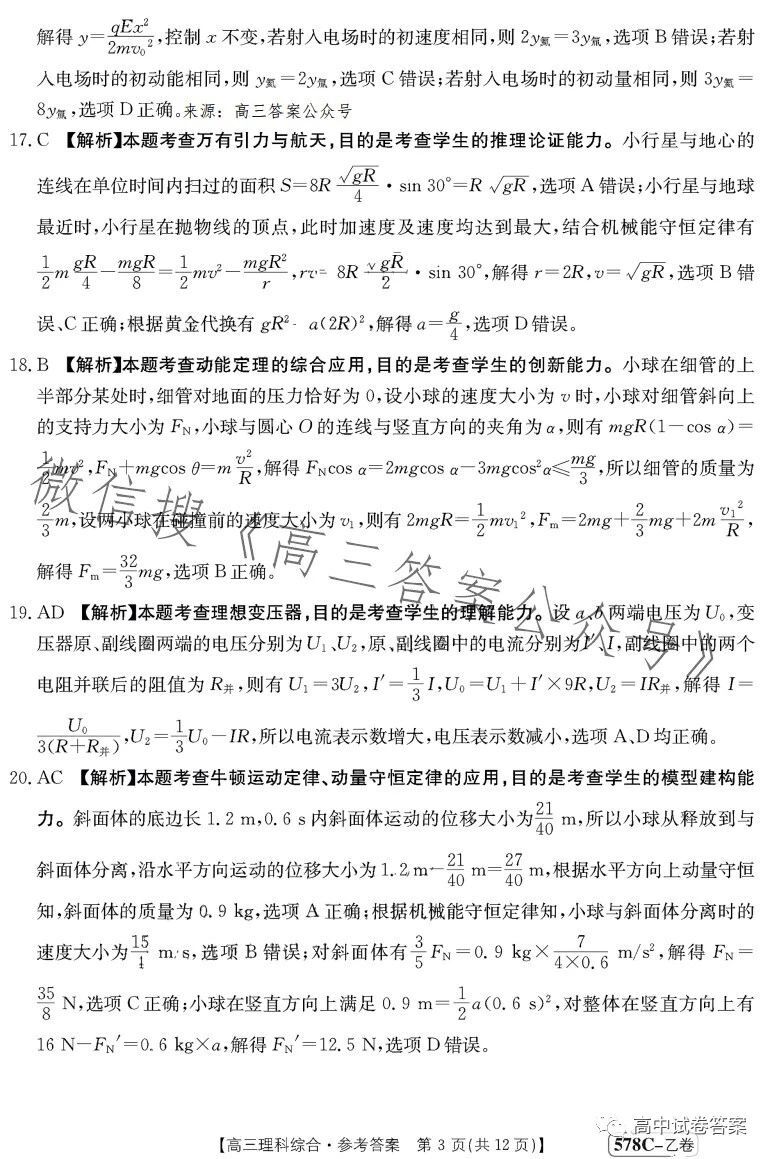 解得 y=qEx²/2mv₀²,控制 x 不变,若射入电场时的初速度相同,则 2y氦=3y氚,选项 B 错误;若射
入电场时的初动能相同,则 y氦=2y氚,选项 C 错误;若射入电场时的初动量相同,则 3y氦=
8y氚,选项 D 正确。来源:高三答案公众号
17. C 【解析】本题考查万有引力与航天,目的是考查学生的推理论证能力。小行星与地心的
连线在单位时间内扫过的面积 S=8R √gR/4 · sin 30°=R √gR,选项 A 错误;小行星与地球
最近时,小行星在抛物线的顶点,此时加速度及速度均达到最大,结合机械能守恒定律有
1/2 m gR/4 - mgR/8 = 1/2 mv² - mgR²/r, rv= 8R √gR/2 · sin 30°,解得 r=2R,v=√gR,选项 B 错
误、C 正确;根据黄金代换有 gR²- a(2R)²,解得 a=g/4,选项 D 错误。
18. B 【解析】本题考查动能定理的综合应用,目的是考查学生的创新能力。小球在细管的上
半部分某处时,细管对地面的压力恰好为 0,设小球的速度大小为 v 时,小球对细管斜向上
的支持力大小为 FN,小球与圆心 O 的连线与竖直方向的夹角为 α,则有 mgR(1-cos α)=
1/2 mv²,FN+mgcos θ=m v²/R,解得 FNcos α=2mgcos α-3mgcos²α≤mg/3,所以细管的质量为
2/3 m,设两小球在碰撞前的速度大小为 v₁,则有 2mgR=1/2 mv₁²,Fm=2mg+2/3 mg+2m v₁²/R,
解得 Fm=32/3 mg,选项 B 正确。
19. AD 【解析】本题考查理想变压器,目的是考查学生的理解能力。设 a、b 两端电压为 U₀,变
压器原、副线圈两端的电压分别为 U₁、U₂,原、副线圈中的电流分别为 I′、I,副线圈中的两个
电阻并联后的阻值为 R并,则有 U₁=3U₂,I′=1/3 I,U₀=U₁+I′×9R,U₂=IR并,解得 I=
U₀/3(R+R并),U₂=1/3 U₀-IR,所以电流表示数增大,电压表示数减小,选项 A、D 均正确。
20. AC 【解析】本题考查牛顿运动定律、动量守恒定律的应用,目的是考查学生的模型建构能
力。斜面体的底边长 1.2 m,0.6 s 内斜面体运动的位移大小为 21/40 m,所以小球从释放到与
斜面体分离,沿水平方向运动的位移大小为 1.2 m-21/40 m=27/40 m,根据水平方向上动量守恒
知,斜面体的质量为 0.9 kg,选项 A 正确;根据机械能守恒定律知,小球与斜面体分离时的
速度大小为 15/4 m/s,选项 B 错误;对斜面体有 3/5 FN=0.9 kg×7/4×0.6 m/s²,解得 FN=
35/8 N,选项 C 正确;小球在竖直方向上满足 0.9 m=1/2 a(0.6 s)²,对整体在竖直方向上有
16 N-FN′=0.6 kg×a,解得 FN′=12.5 N,选项 D 错误。
微信搜《高三答案公众号》
高中试卷答案
【高三理科综合·参考答案 第 3 页(共 12 页)】 578C-乙卷